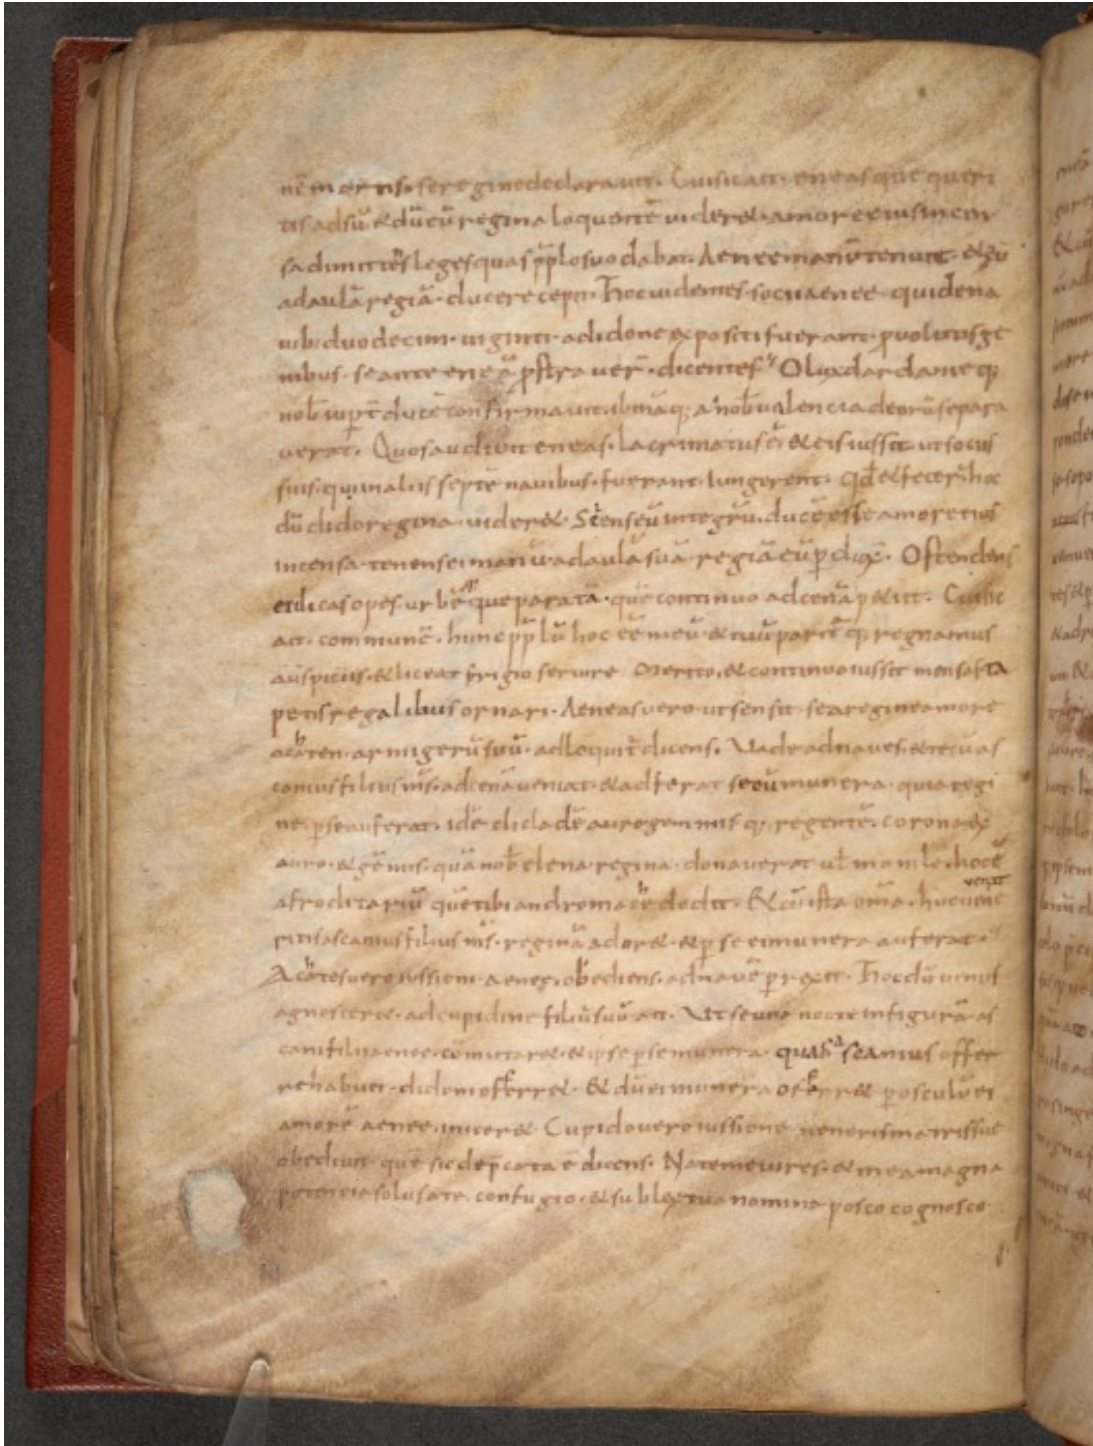 nē mortis. se regine declarauit. Cui sic ait. eneas que queri
tis adsū. & dū eū regina loquentē uider&. amore eius incen
sa dimittens leges quas pplo suo dabat. Aenee manū tenuit. & eū
ad aulā regiā. ducere cepit. Hoc uidentes. socii aenee. qui de na
uib: duodecim. uiginti. a didone expositi fuerant. puolutis ge
nibus. se ante eneā pstrauer. dicentes. O lux dardaniae q;
nob
uerat. Quos audiuit eneas. lacrimatus ē. & eis iussit. ut sociis
suis. qui in aliis septē nauibus. fuerant. iungerent. qd & fecer. hoc
dū dido regina. uider&. Senseū integrū. ducē esse amore eius
incensa. tenens ei manū. ad aulā suā. regiā eū pdux. Ostendens
ei dicas opes. urbēque paratā. que continuo ad cenā petiit. Cui sic
ait. communē. hunc pplū hoc eē meū. & tuū paritē q; regnamus
auspiciis. & liceat frigio seruire marito. & continuo iussit mensas ta
petis regalibus ornari. Aeneas uero. ut sensit. se a regine amore
acaten. armigerū suū. adloquit dicens. Uade ad naues. & tecū as
canius filius ms. ad cenā ueniat. & adferat secū munera. quia regi
ne. p se auferat. idē cicladē auro gemmis q;. regentē. corona ex
auro. & gēmis. quā nob elena regina. donauerat ul manile. hoc ē
afroditariū quē tibi andromache dedit. & cū ista omīa. huc uenerit
ascanius filius ms. reginā ador&. & p se ei munera auferat.
Achates uero iussioni aenee. obediens. ad nauē prexit. Hoc dū uenus
agnoscer&. ad cupidine filiū suū ait. Ut se una nocte in figurā as
canii filii aenee. cōmittar&. & ipse p se munera. quas ascanius offer
re habuit. didoni offerr&. & dū ei munera offerr& p osculū ei
amorē aenee. inicer& Cupido uero iussione ueneris matris sue
obediuit. que sic depcata ē dicens. Nate me uires. & mea magna
potencia solus a te. confugio. & sublex tua nomina posco cognosco